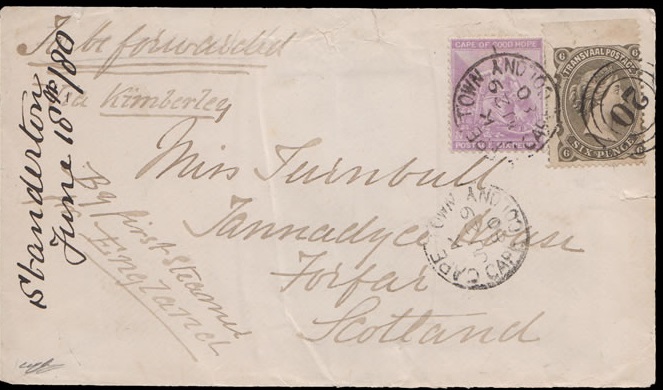 To be forwarded
via Kimberley
Standerton
June 18th/80
By first steamer
England
Miss Turnbull
Tannadyce House
Forfar
Scotland
CAPE OF GOOD HOPE
POSTAGE
TRANSVAAL POSTAGE
6 6
6 6
SIX PENCE
20
CAPE TOWN
CAPE TOWN